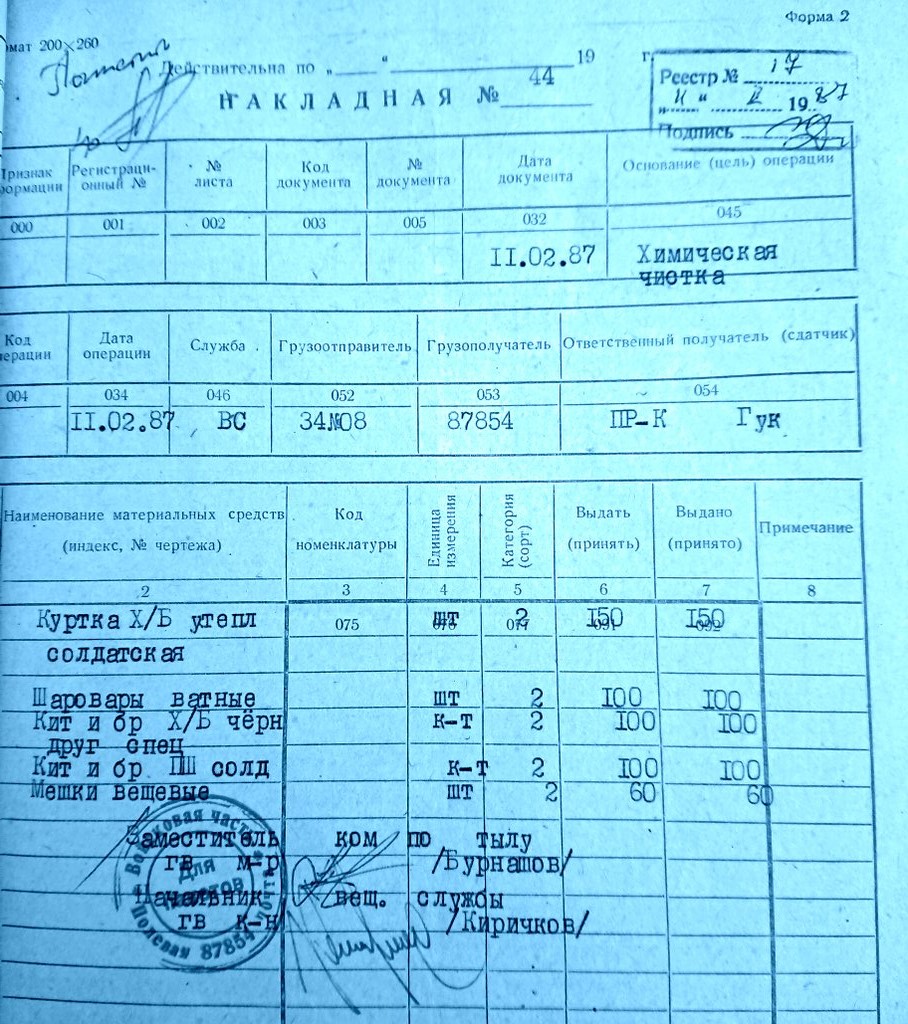 Форма 2
мат 200×260
Действительна по „ “ 19 г.
НАКЛАДНАЯ № 44
Реестр № 17
„11“ 2 1987
Подпись
Признак формации
Регистраци-онный №
№ листа
Код документа
№ документа
Дата документа
Основание (цель) операции
000 001 002 003 005 032 045
II.02.87 Химическая
чистка
Код
ерации
Дата операции
Служба
Грузоотправитель
Грузополучатель
Ответственный получатель (сдатчик)
004 034 046 052 053 054
II.02.87 ВС 34№08 87854 ПР-К Гук
Наименование материальных средств
(индекс, № чертежа)
Код
номенклатуры
Единица измерения
Категория (сорт)
Выдать
(принять)
Выдано
(принято)
Примечание
2 3 4 5 6 7 8
Куртка Х/Б утепл 075 шт 2 I50 I50
солдатская
Шаровары ватные шт 2 I00 I00
Кит и бр Х/Б чёрн к-т 2 I00 I00
друг спец
Кит и бр ПШ солд к-т 2 I00 I00
Мешки вещевые шт 2 60 60
Заместитель ком по тылу
гв м-р /Бурнашов/
Начальник вещ. службы
гв к-н /Киричков/
Войсковая часть
Полевая почта 87854
Для